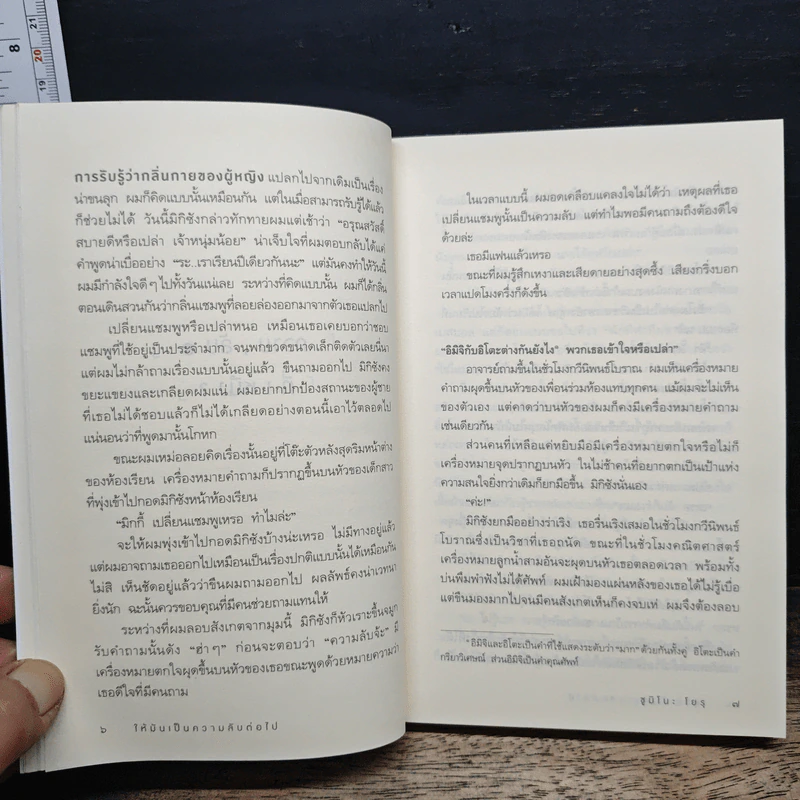 8
21
20
19
การรับรู้ว่ากลิ่นกายของผู้หญิง แปลกไปจากเดิมเป็นเรื่อง
น่าขนลุก ผมก็คิดแบบนั้นเหมือนกัน แต่ในเมื่อสามารถรับรู้ได้แล้ว
ก็ช่วยไม่ได้ วันนี้มิกิซังกล่าวทักทายผมแต่เช้าว่า “อรุณสวัสดิ์
สบายดีหรือเปล่า เจ้าหนุ่มน้อย” น่าเจ็บใจที่ผมตอบกลับได้แค่
คำพูดน่าเบื่ออย่าง “ระ..เราเรียนปีเดียวกันนะ” แต่มันคงทำให้วันนี้
ผมมีกำลังใจดีๆ ไปทั้งวันแน่เลย ระหว่างที่คิดแบบนั้น ผมก็ได้กลิ่น
ตอนเดินสวนกันว่ากลิ่นแชมพูที่ลอยล่องออกมาจากตัวเธอแปลกไป
เปลี่ยนแชมพูหรือเปล่าหนอ เหมือนเธอเคยบอกว่าชอบ
แชมพูที่ใช้อยู่เป็นประจำมาก จนพกขวดขนาดเล็กติดตัวเลยนี่นา
แต่ผมไม่กล้าถามเรื่องแบบนั้นอยู่แล้ว ขืนถามออกไป มิกิซังคง
ขยะแขยงและเกลียดผมแน่ ผมอยากปกป้องสถานะของผู้ชาย
ที่เธอไม่ได้ชอบแล้วก็ไม่ได้เกลียดอย่างตอนนี้เอาไว้ตลอดไป
แน่นอนว่าที่พูดมานั้นโกหก
ขณะผมเหม่อลอยคิดเรื่องนั้นอยู่ที่โต๊ะตัวหลังสุดริมหน้าต่าง
ของห้องเรียน เครื่องหมายคำถามก็ปรากฏขึ้นบนหัวของเด็กสาว
ที่พุ่งเข้าไปกอดมิกิซังหน้าห้องเรียน
“มิกกี้ เปลี่ยนแชมพูเหรอ ทำไมล่ะ”
จะให้ผมพุ่งเข้าไปกอดมิกิซังบ้างน่ะเหรอ ไม่มีทางอยู่แล้ว
แต่ผมอาจถามเธอออกไปเหมือนเป็นเรื่องปกติแบบนั้นได้เหมือนกัน
ไม่สิ เห็นชัดอยู่แล้วว่าขืนผมถามออกไป ผลลัพธ์คงน่าเวทนา
ยิ่งนัก ฉะนั้นควรขอบคุณที่มีคนช่วยถามแทนให้
ระหว่างที่ผมลอบสังเกตจากมุมนี้ มิกิซังก็หัวเราะขึ้นจมูก
รับคำถามนั้นดัง “ฮ่าๆ” ก่อนจะตอบว่า “ความลับจ้ะ” มี
เครื่องหมายตกใจผุดขึ้นบนหัวของเธอขณะพูดด้วยหมายความว่า
เธอดีใจที่มีคนถาม
๖ ให้มันเป็นความลับต่อไป
ในเวลาแบบนี้ ผมอดเคลือบแคลงใจไม่ได้ว่า เหตุผลที่เธอ
เปลี่ยนแชมพูนั้นเป็นความลับ แต่ทำไมพอมีคนถามถึงต้องดีใจ
ด้วยล่ะ
เธอมีแฟนแล้วเหรอ
ขณะที่ผมรู้สึกเหงาและเสียดายอย่างสุดซึ้ง เสียงกริ่งบอก
เวลาแปดโมงครึ่งก็ดังขึ้น
“อิมิจิกับอิโตะต่างกันยังไง* พวกเธอเข้าใจหรือเปล่า”
อาจารย์ถามขึ้นในชั่วโมงกวีนิพนธ์โบราณ ผมเห็นเครื่องหมาย
คำถามผุดขึ้นบนหัวของเพื่อนร่วมห้องแทบทุกคน แม้ผมจะไม่เห็น
ของตัวเอง แต่คาดว่าบนหัวของผมก็คงมีเครื่องหมายคำถาม
เช่นเดียวกัน
ส่วนคนที่เหลือแค่หยิบมือมีเครื่องหมายตกใจหรือไม่ก็
เครื่องหมายจุดปรากฏบนหัว ในไม่ช้าคนที่อยากตกเป็นเป้าแห่ง
ความสนใจยิ่งกว่าเดิมก็ยกมือขึ้น มิกิซังนั่นเอง
“ค่ะ!”
มิกิซังยกมืออย่างร่าเริง เธอรื่นเริงเสมอในชั่วโมงกวีนิพนธ์
โบราณซึ่งเป็นวิชาที่เธอถนัด ขณะที่ในชั่วโมงคณิตศาสตร์
เครื่องหมายลูกน้ำสามอันจะผุดบนหัวเธอตลอดเวลา พร้อมทั้ง
บ่นพึมพำฟังไม่ได้ศัพท์ ผมเฝ้ามองแผ่นหลังของเธอได้ไม่รู้เบื่อ
แต่ขืนมองมากไปจนมีคนสังเกตเห็นก็คงจบเห่ ผมจึงต้องลอบ
* อิมิจิและอิโตะเป็นคำที่ใช้แสดงระดับว่า “มาก” ด้วยกันทั้งคู่ อิโตะเป็นคำ
กริยาวิเศษณ์ ส่วนอิมิจิเป็นคำคุณศัพท์
ซูมิโนะ โยรุ ๗